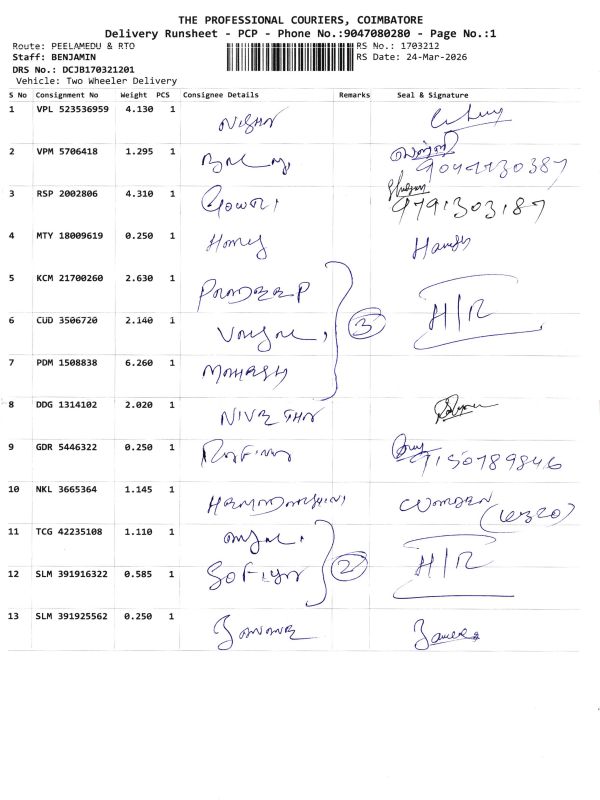 THE PROFESSIONAL COURIERS, COIMBATORE
Delivery Runsheet - PCP - Phone No.:9047080280 - Page No.:1
Route: PEELAMEDU & RTO RS No.: 1703212
Staff: BENJAMIN RS Date: 24-Mar-2026
DRS No.: DCJB170321201
Vehicle: Two Wheeler Delivery
S No Consignment No Weight PCS Consignee Details Remarks Seal & Signature
1 VPL 523536959 4.130 1
2 VPM 5706418 1.295 1
3 RSP 2002806 4.310 1 Gowri 9791303187
4 MTY 18009619 0.250 1
5 KCM 21700260 2.630 1 PRADEEP
6 CUD 3506720 2.140 1 3 H/R
7 PDM 1508838 6.260 1 MAHESH
8 DDG 1314102 2.020 1
9 GDR 5446322 0.250 1 9150789846
10 NKL 3665364 1.145 1
11 TCG 42235108 1.110 1
12 SLM 391916322 0.585 1 SOFIYA 2 H/R
13 SLM 391925562 0.250 1